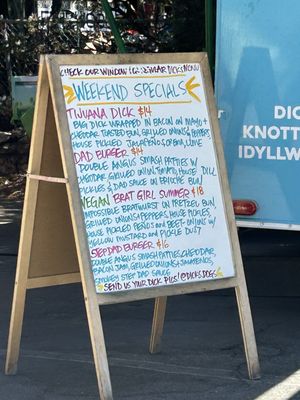 CHECK OUR WINDOW
WEEKEND SPECIALS
TIJUANA DICK $14
BIG DICK WRAPPED IN BACON W/ MAYO +
CHEDDAR TOASTED BUN, GRILLED ONIONS & PEPPERS
HOUSE PICKLED JALAPEÑOS & LIME
DAD BURGER $14
DOUBLE ANGUS SMASH PATTIES W/
CHEDDAR, GRILLED ONION, TOMATO, HOUSE DILL
PICKLES & DAD SAUCE ON BRIOCHE BUN
VEGAN BRAT GIRL SUMMER $18
IMPOSSIBLE BRATWURST ON PRETZEL BUN,
GRILLED ONIONS & PEPPERS, HOUSE PICKLES,
HOUSE PICKLED AND BEET ONIONS W/
YELLOW MUSTARD AND PICKLE DUST
STEP DAD BURGER $16
DOUBLE ANGUS SMASH, CHEDDAR,
BACON JAM, GRILLED ONIONS & JALAPENOS,
SMOKEY STEP DAD SAUCE
SEND US YOUR DICK PICS! @DICKSDOGS
DICK
KNOTT
IDYLLW